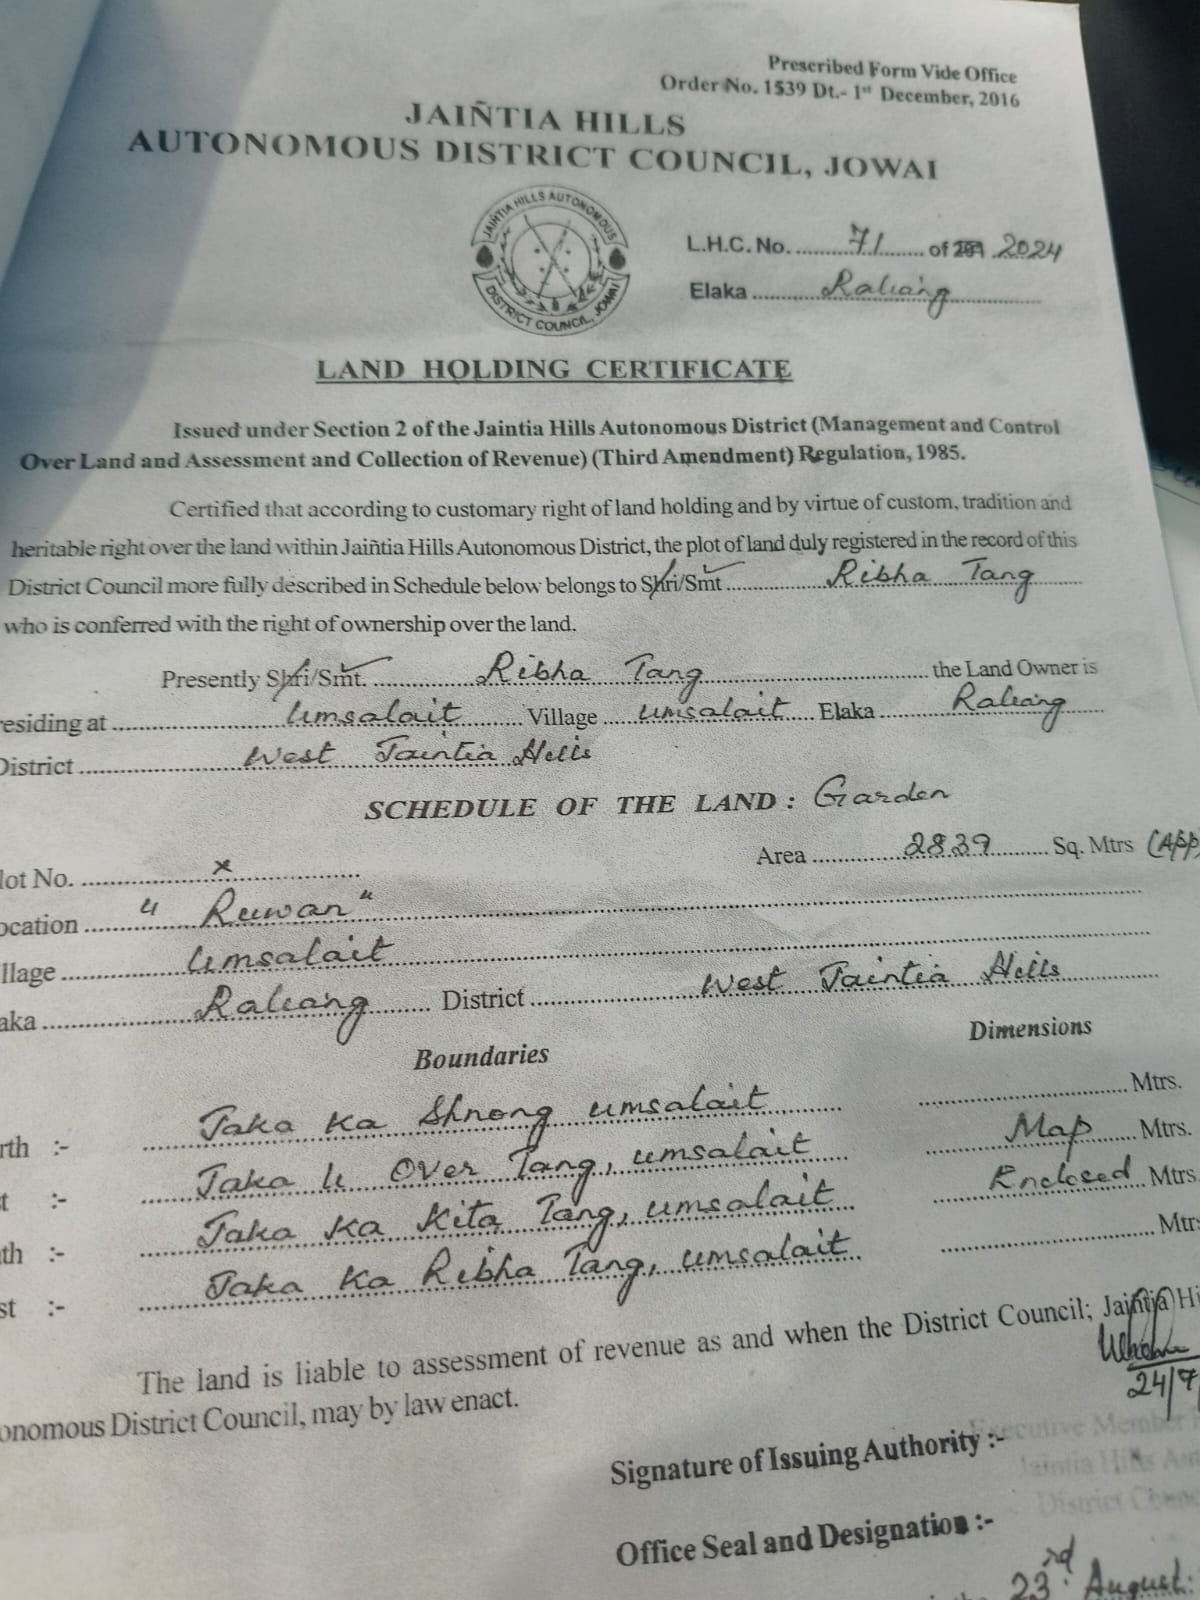 Prescribed Form Vide Office
Order No. 1539 Dt.- 1st December, 2016
JAIÑTIA HILLS
AUTONOMOUS DISTRICT COUNCIL, JOWAI
JAIÑTIA HILLS AUTONOMOUS
DISTRICT COUNCIL, JOWAI
L.H.C. No. 71 of 2024
Elaka Raliang
LAND HOLDING CERTIFICATE
Issued under Section 2 of the Jaintia Hills Autonomous District (Management and Control
Over Land and Assessment and Collection of Revenue) (Third Amendment) Regulation, 1985.
Certified that according to customary right of land holding and by virtue of custom, tradition and
heritable right over the land within Jaiñtia Hills Autonomous District, the plot of land duly registered in the record of this
District Council more fully described in Schedule below belongs to Shri/Smt Ribha Tang
who is conferred with the right of ownership over the land.
Presently Shri/Smt. Ribha Tang the Land Owner is
residing at Umsalait Village Umsalait Elaka Raliang
District West Jaintia Hills
SCHEDULE OF THE LAND : Garden
lot No. x Area 2839 Sq. Mtrs (APP
ocation "Ruwan"
llage Umsalait
aka Raliang District West Jaintia Hills
Boundaries Dimensions
rth :- Jaka Ka Shnong umsalait Mtrs.
t :- Jaka U Over Tang, umsalait Map Mtrs.
th :- Jaka Ka Kita Tang, umsalait Enclosed Mtrs.
st :- Jaka Ka Ribha Tang, umsalait Mtrs
The land is liable to assessment of revenue as and when the District Council; Jaiñtia Hi
onomous District Council, may by law enact.
24/7
Signature of Issuing Authority :- Executive Member
Jaintia Hills Au
District Counc
Office Seal and Designation :-
23rd August